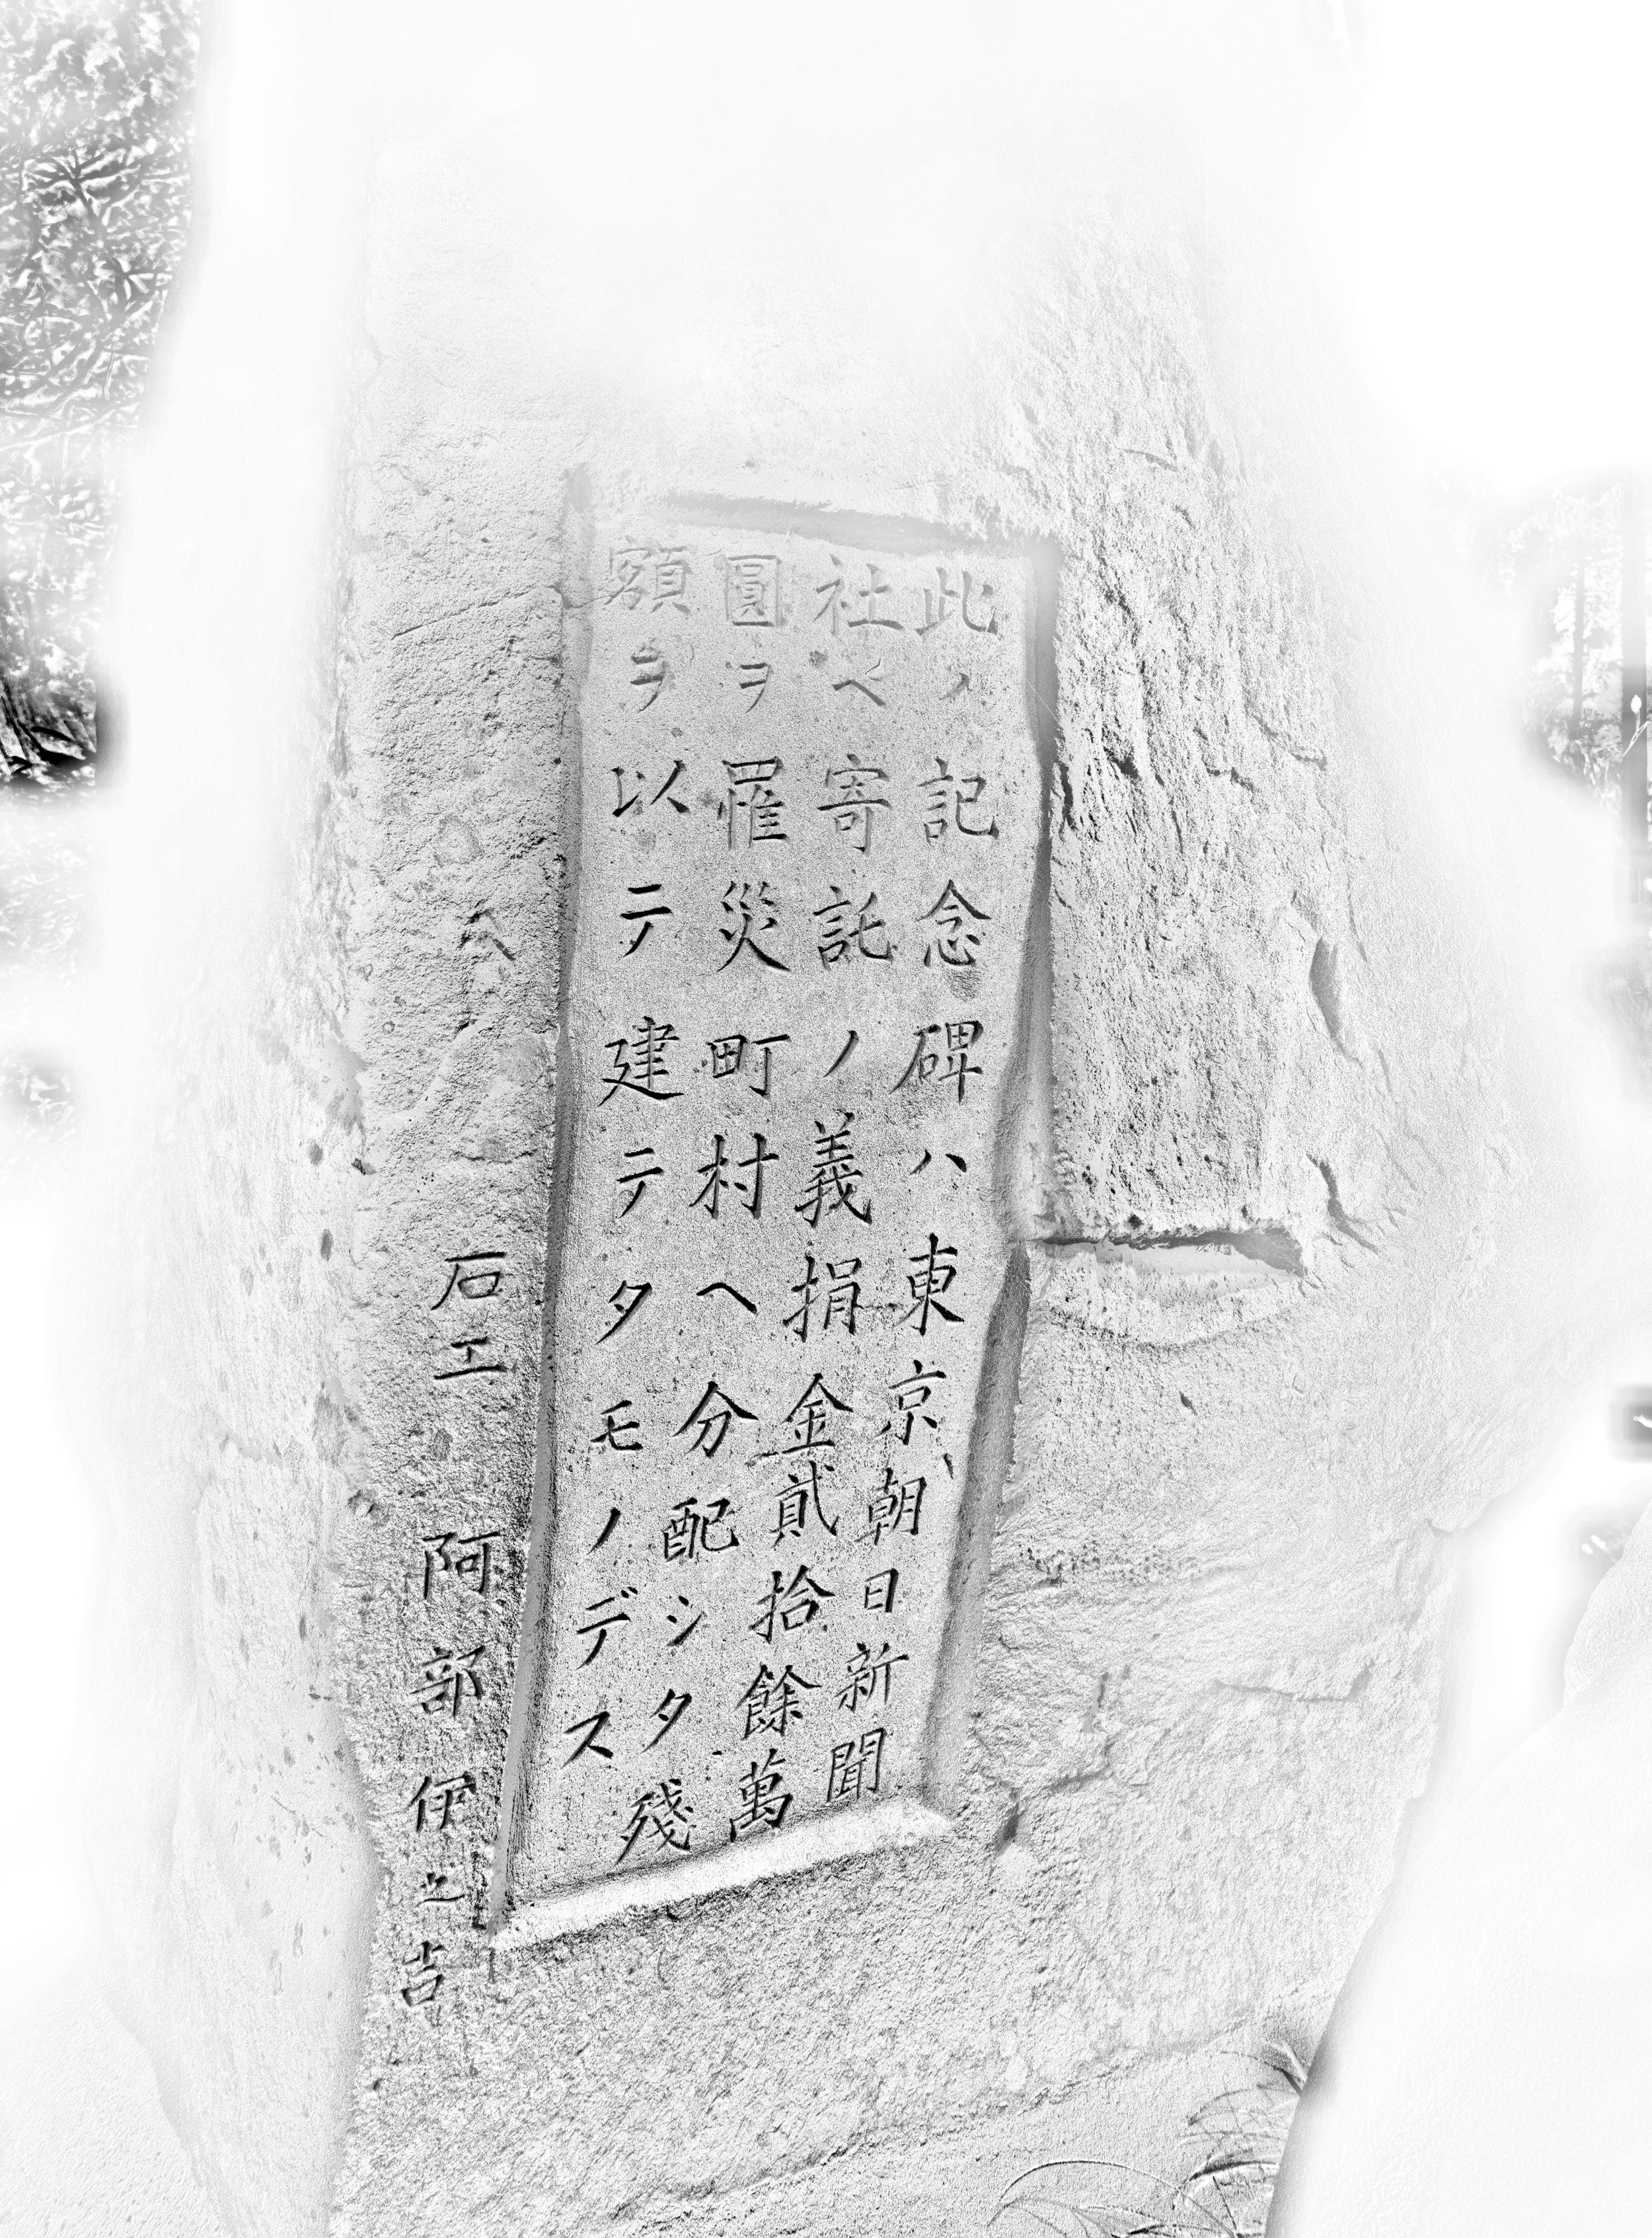 此ノ記念碑ハ東京朝日新聞
社ヘ寄託ノ義捐金貳拾餘萬
圓ヲ罹災町村ヘ分配シタ殘
額ヲ以テ建テタモノデス
石工 阿部伊之吉